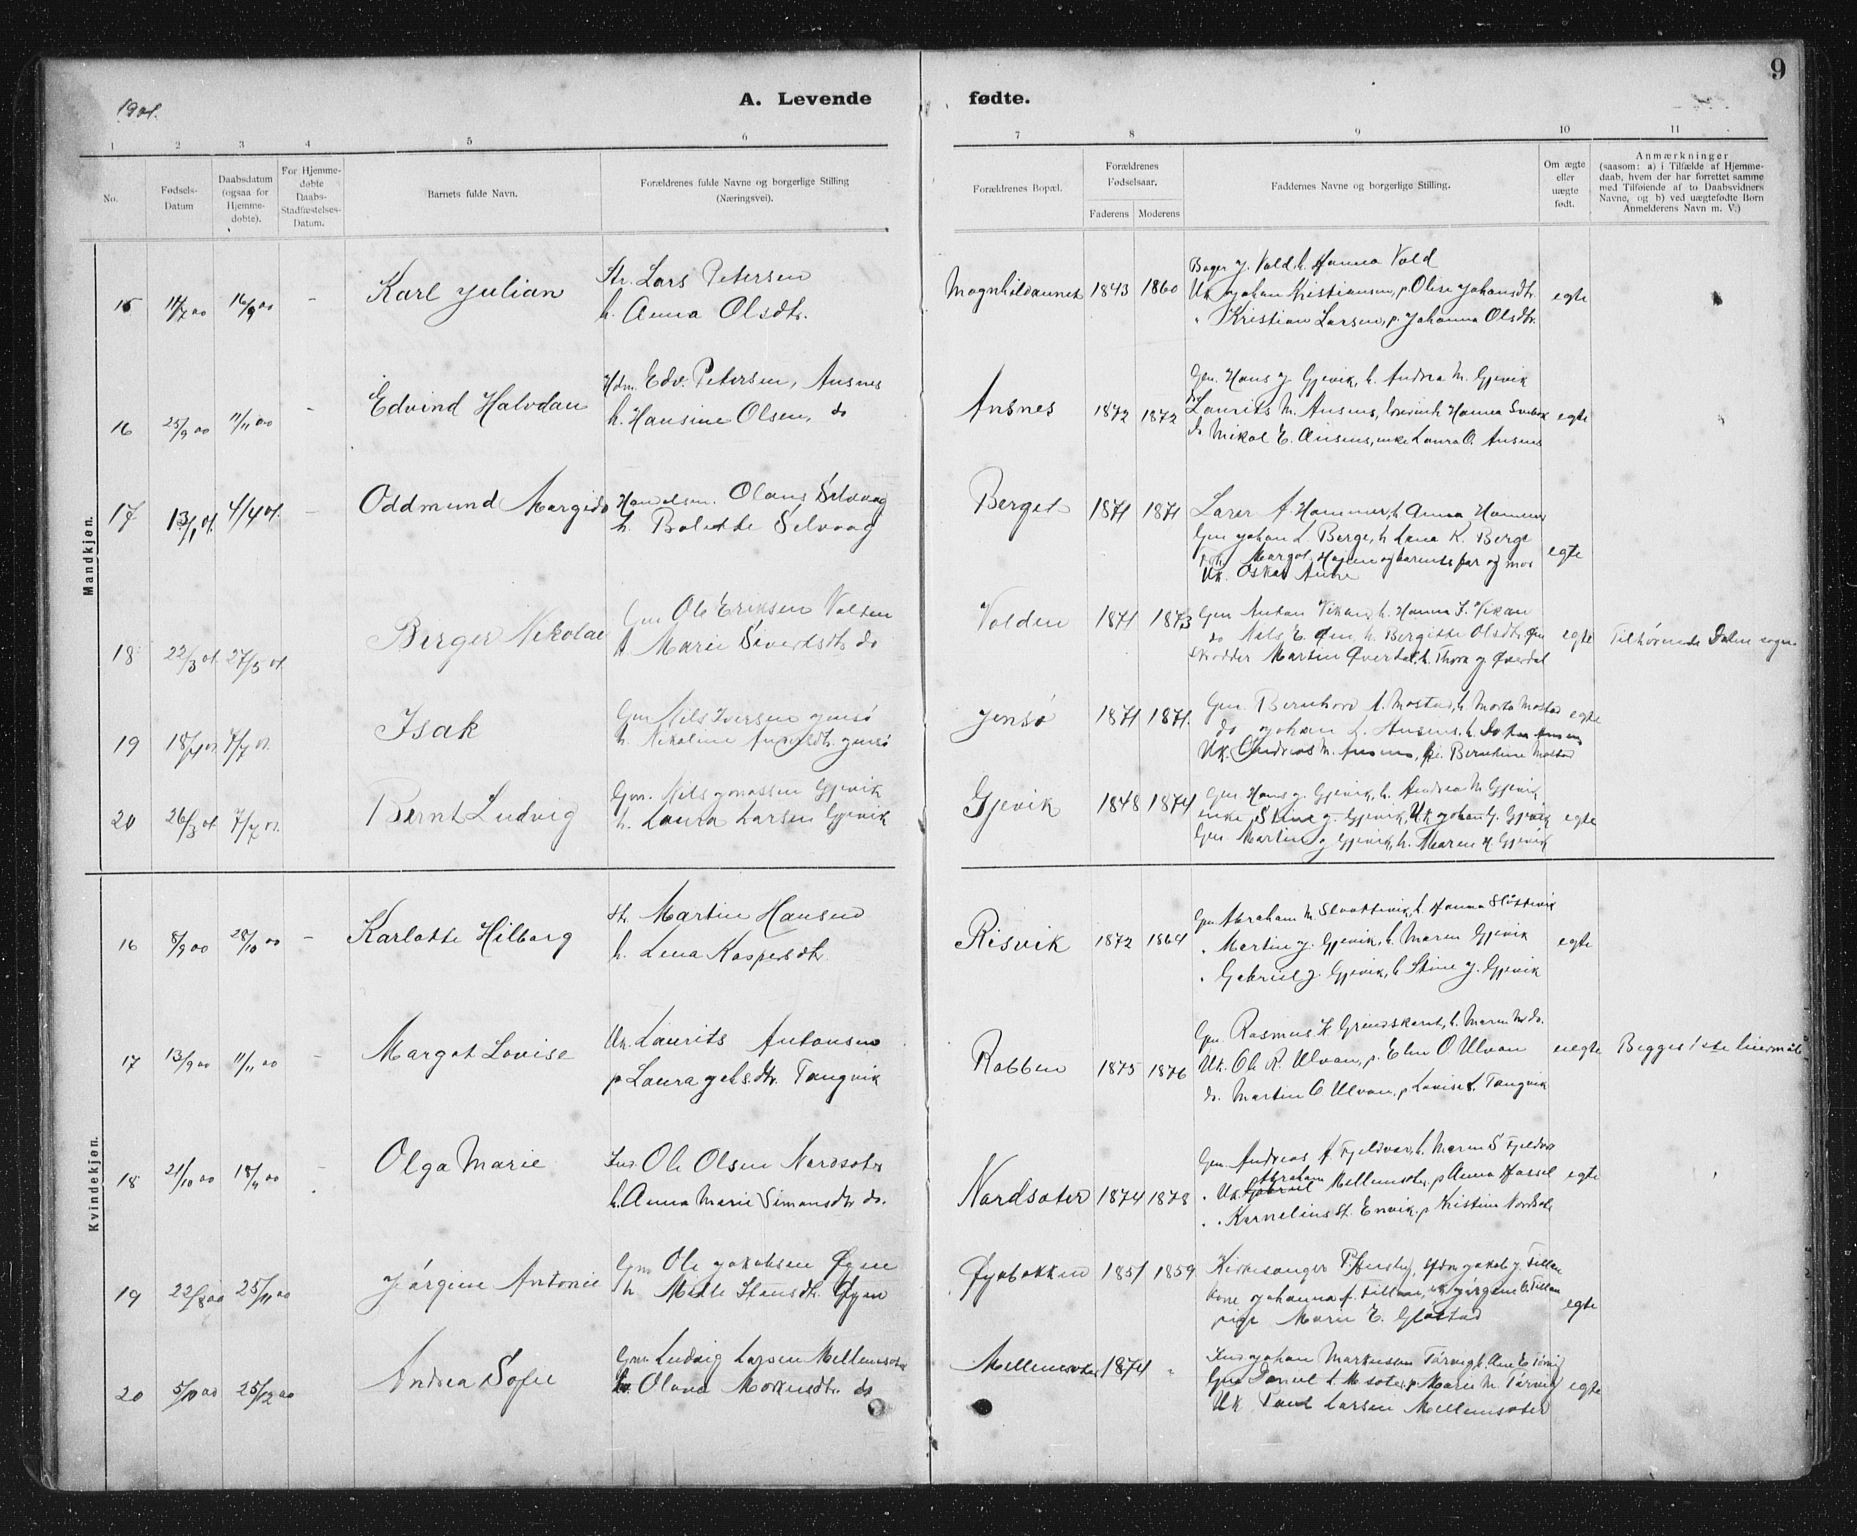 9
1901.
A. Levende fødte.
1 2 3 4 5 6 7 8 9 10 11
No.
Fødsels-
Datum
Daabsdatum
(ogsaa for
Hjemme-
døbte).
For Hjemme-
døbte
Daabs-
Stadfæstelses-
Datum.
Barnets fulde Navn.
Forældrenes fulde Navne og borgerlige Stilling
(Næringsvei).
Forældrenes Bopæl.
Forældrenes
Fødselsaar.
Faderens Moderens
Faddernes Navne og borgerlige Stilling.
Om ægte
eller
uægte
født.
Anmærkninger
(saasom: a) i Tilfælde af Hjemme-
daab, hvem der har forrettet samme
med Tilføiende af to Daabsvidners
Navne, og b) ved uægtefødte Børn
Anmelderens Navn m. V.)
Mandkjøn.
15 16/9 00 - Karl Julian
Str. Lars Petersen
h. Anna Olsdtr.
1843 1860
Bager J. Vold, h. Hanna Vold
Uk. Johan Kristiansen, p. Oline Johansdtr.
" Kristian Larsen, p. Johanna Olsdtr.
egte
16 25/9 00 11/11 00 - Edvind Halvdan
Hdm. Edv. Petersen, Ansnes
h. Hansine Olsen, do
Ansnes 1872 1872
Gm. Hans J. Gjevik, h. Andrea M. Gjevik
Laurits M. Ansnes, Hanna
do Mikal E. Ansnes, enke Laura O. Ansnes
egte
17 13/1 01. 4/4 01. - Oddmund Margido
Olaus Selvaag
h. Bolette Selvaag
Berget 1871 1871
Lærer A. Hammer, h. Anna Hammer
Gm Johan L. Berge, h. Lina K. Berge
Margot og barnets far og mor
Uk. Oskar Aune
egte
18 22/3 01. 27/5 01. Berger Nikolai
Gm Ole Eriksen Volden
h Marie Sivertsdtr. do
Volden 1871 1873
Gm Anton Vikan, h. Hanna J. Vikan
do Nils E. Øien, h. Bergitte Olsdtr. Øien
Skrædder Martin Øverdal, h. Thora J. Øverdal
egte Tilhørende Dolm sogn
19 18/4 01. 7/7 01. Isak
Gm Nils Iversen Jensø
h. Nikoline Jensø
Jensø 1871 1871.
Gm. Bernhard A. Mostad, h. Marta Mostad
do Johan L. Ansnes, h.
Uk. Andreas M. Ansnes, pi. Berntine Mostad
egte
20 26/3 01. 7/7 01. Bernt Ludvig
Gm. Nils Jonassen Gjevik
h. Laura Larsen Gjevik
Gjevik 1848 1874
Gm Hans J. Gjevik, h. Andrea M. Gjevik
enke Stine J. Gjevik, Uk Johan G. Gjevik
Gm. Martin J Gjevik, h. Maren H Gjevik
egte
Kvindekjøn.
16 8/9 00 28/10 00 - Karlotte Hilborg
Str. Martin Hansen
h. Lena Kaspersdtr.
Risvik 1872 1864
Gm Abraham M. Slaattevik, h. Hanna Slåttevik
" Martin J. Gjevik, h. Maren Gjevik
" Gabriel J. Gjevik, h. Stine J. Gjevik
egte
17 13/9 00 11/11 00 - Margot Lovise
Uk. Laurits Antonsen
p Laura Tangvik
Rabben 1875 1876
Gm. Rasmus K Grindskaret, h. Maren M do.
Uk. Ole R. Ulvan, p. Elen O Ulvan
do. Martin O Ulvan, p. Lovise L. Tangvik
uegte Begges 1ste leiermål
18 21/10 00 00 - Olga Marie
Ind Ole Olsen Nordsæter
h. Anna Marie Simonsdtr do.
Nordsæter 1874 1878
Gm. Andreas A. Fjeldvær, h. Maren S Fjeldvær
" Uk. Abraham Mellemsæter, p Anna Hassel
" " Kornelius St. Envik, p Kristine Nordsæt
egte
19 22/8 00 25/11 00 Jørgine Antonie
Gm Ole Jakobsen Øyen
h. Mette Øyen
Øyabakken 1851 1859
Kirkesanger
kone Johanna J. Tillan, uk Jørgen O. Tillan
pige Marie E. Gløstad
egte
20 25/12 00 Andrea Sofie
Gm. Ludvig Larsen Mellemsæter
h. Olava do
Mellemsæter 1874 "
Ind Johan Markussen Tårvig, h. Ane E Tårvig
Gm Daniel L M sæter, p Marie M. Tårvig
Uk. Larsen Mellemsæter
egte